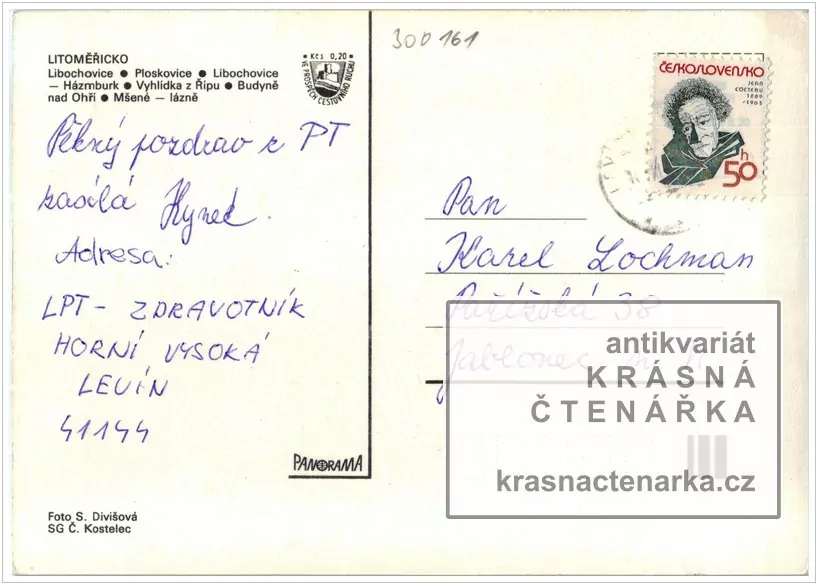 300161
LITOMĚŘICKO
Libochovice ● Ploskovice ● Libochovice
— Házmburk ● Vyhlídka z Řípu ● Budyně
nad Ohří ● Mšené — lázně
Kčs 0,20
VE PROSPĚCH CESTOVNÍHO RUCHU
Pěkný pozdrav z PT
zasílá Hynek.
Adresa:
LPT - ZDRAVOTNÍK
HORNÍ VYSOKÁ
LEVÍN
41144
PANORAMA
Foto S. Divišová
SG Č. Kostelec
ČESKOSLOVENSKO
JEAN
COCTEAU
1889
1963
50h
Pan
Karel Lochman
Pařížská 38
Jablonec n. N.
antikvariát
KRÁSNÁ
ČTENÁŘKA
krasnactenarka.cz